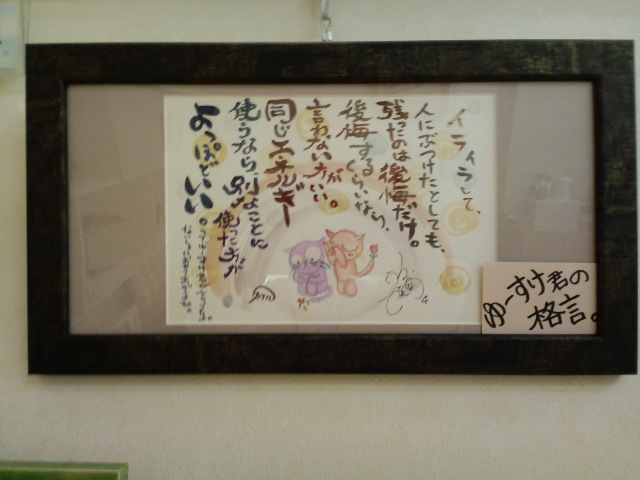 イライラして、
人にぶつけたとしても、
残ったのは後悔だけ。
後悔するくらいなら、
言わない方がいい。
同じエネルギー
使うなら、別なことに
使った方が
よっぽどいい。
ゆーすけ君の
格言。